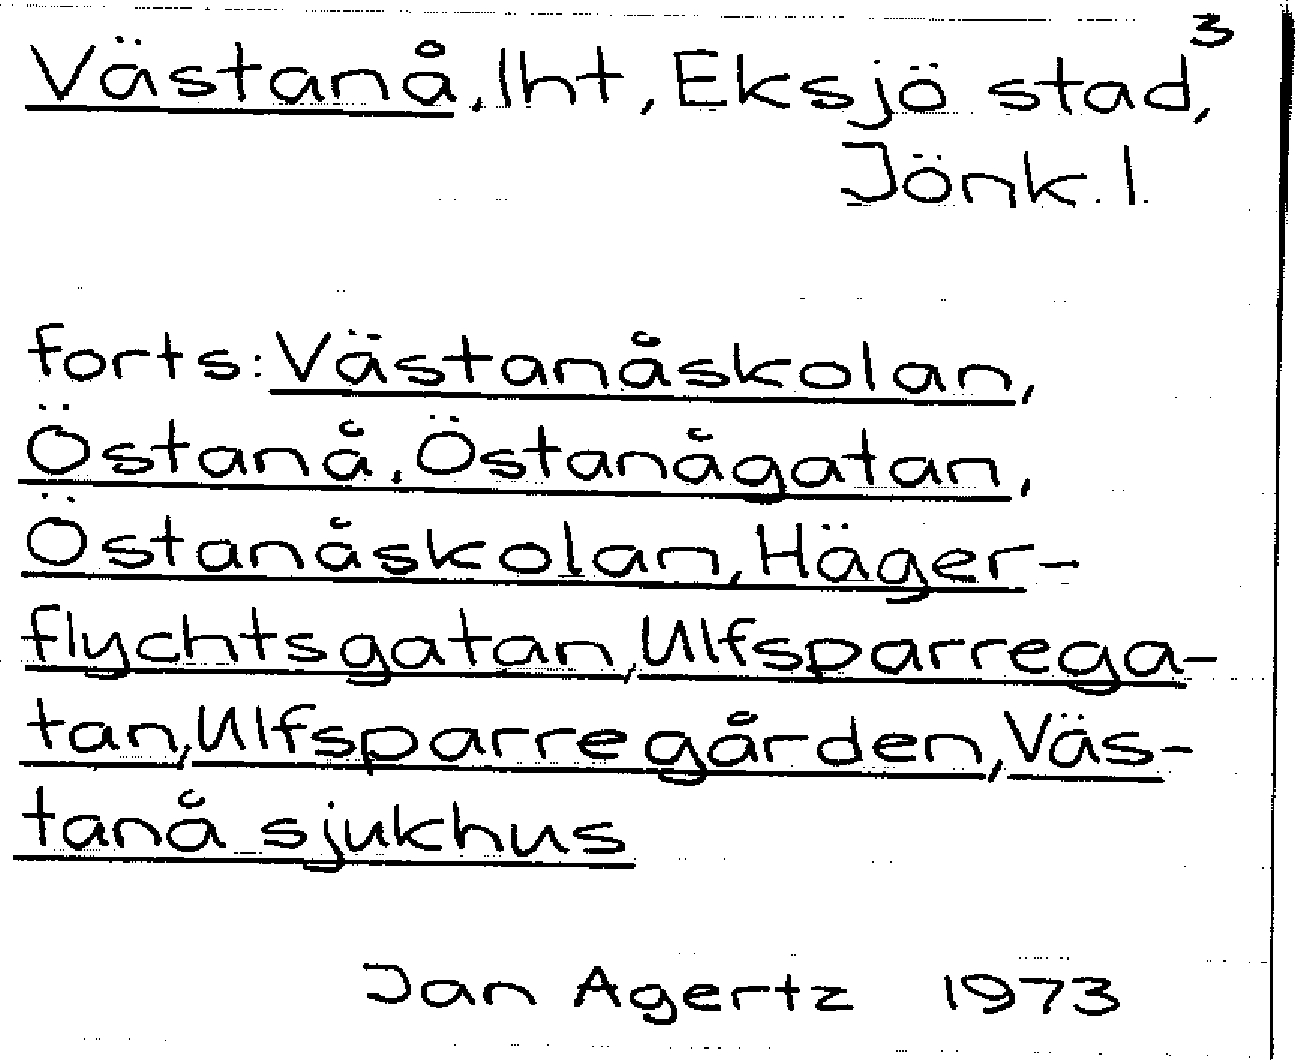 3
Västanå, lht, Eksjö stad,
Jönk. l.
forts: Västanåskolan,
Östanå, Östanågatan,
Östanåskolan, Häger-
flychtsgatan, Ulfsparrega-
tan, Ulfsparregården, Väs-
tanå sjukhus
Jan Agertz 1973